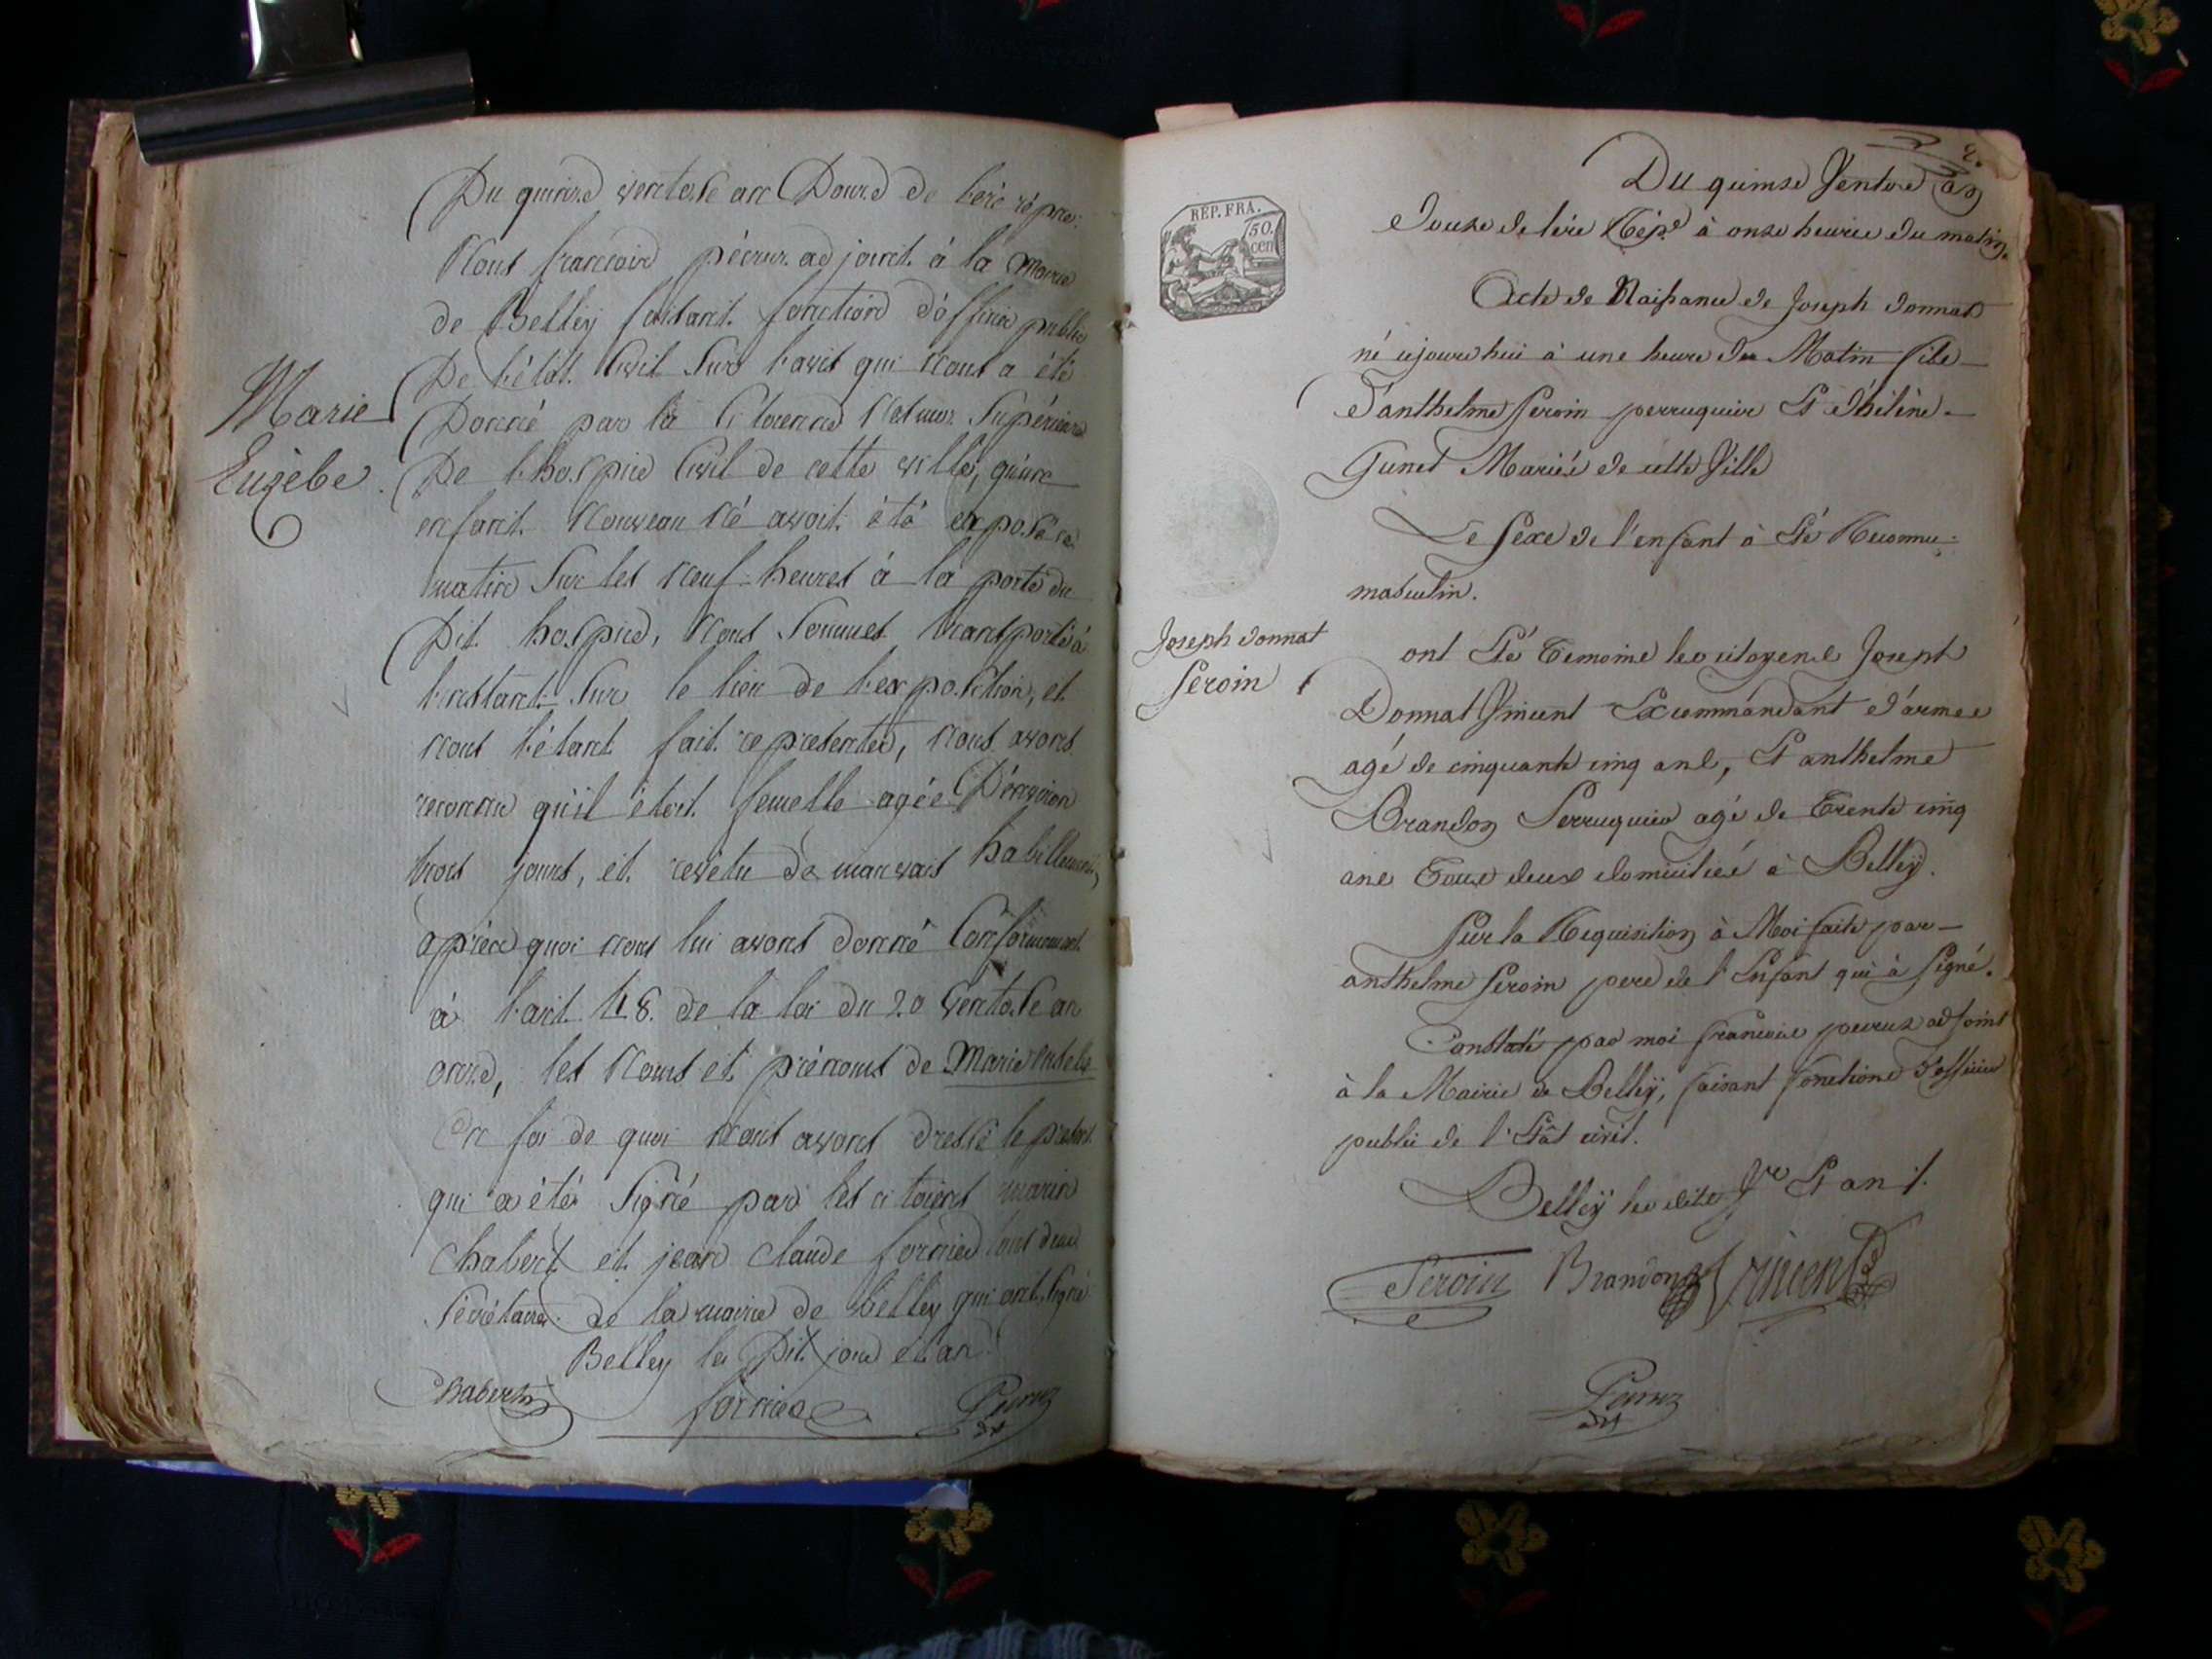 Du quinze ventose an Douze de l'ere répne:
Nous francois pécruz adjoint à la Mairie
de Belley faisant fonctions d'officier public
De l'état Civil Sur l'avis qui nous a été
Donné par la Citoienne Supérieure
De l'hospice Civil de cette ville, qu'un
enfant nouveau né avoit été exposé ce
matin Sur les neuf heures à la porte du
Dit hospice, nous Sommes transporté à
l'instant Sur le lieu de l'exposition, et
nous l'étant fait representer, nous avons
reconnu qu'il étoit femelle agée D'environ
trois jours, et revetu de mauvais habillements,
après quoi nous lui avons donné Conformement
à l'art. 48. de la loi du 20 Ventose an
onze, les noms et prénoms de Marie Eusebe
En foi de quoi nous avons dressé le présent
qui a été Signé par les citoiens marin
Chabert et jean Claude fornier tous deux
Sécrétaires de la mairie de Belley qui ont Signé
Belley les Dit jour et an
Chabert fornier Pecruz
adjt
Marie
Euzèbe
2.
Du quinze Ventose an
douze de l'ére Rép.e à onze heures du matin.
Acte de Naissance de Joseph donnat
né cejourd'hui à une heure du Matin fils
d'anthelme Peroin perruquier Et d'hélène
Gunet Mariés de cette Ville
Le Sexe de l'enfant à Eté Reconnu
masculin.
ont Eté Temoins les citoyens Joseph
Donnat Vincent Excommandant d'armes
agé de cinquante cinq ans, Et anthelme
Brandon Perruquier agé de Trente cinq
ans Tous deux domiciliés à Belley.
Sur la Requisition à Moi faite par
anthelme Peroin pere de l'Enfant qui à Signé.
Constaté par moi francois pecruz adjoint
à la Mairie de Belley, faisant fonctions d'officier
public de l'Etât civil.
Belley les dits Jr Et an.
Peroin Brandon Vincent
Pecruz
adjt
REP. FRA.
50.
cen
Joseph donnat
Peroin